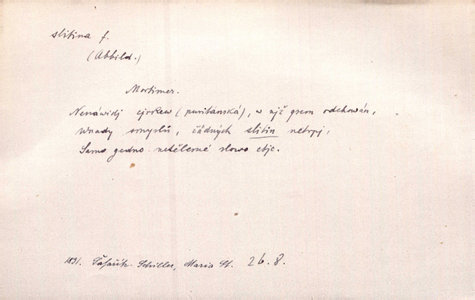 slitina f.
(Abbild.)
Mortimer.
Nenáwidj cjrkew (puritánská), w njž gsem odchowán,
wnady smyslů, žádných slitin netrpj,
Samo gedno netělesné slowo ctje.
1831. Šafařík-Schiller, Maria St. 26.8.